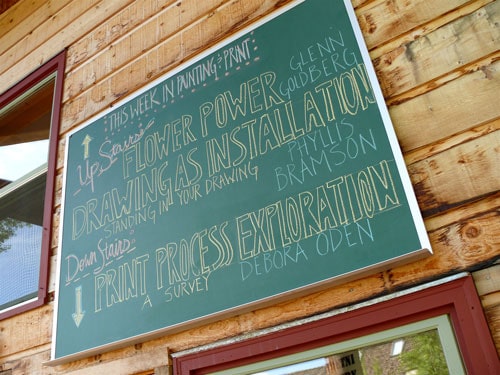 THIS WEEK IN PAINTING & PRINT
Up Stairs
FLOWER POWER GLENN GOLDBERG
DRAWING AS INSTALLATION
STANDING IN YOUR DRAWING PHYLLIS BRAMSON
Down Stairs
PRINT PROCESS EXPLORATION
A SURVEY DEBORA ODEN